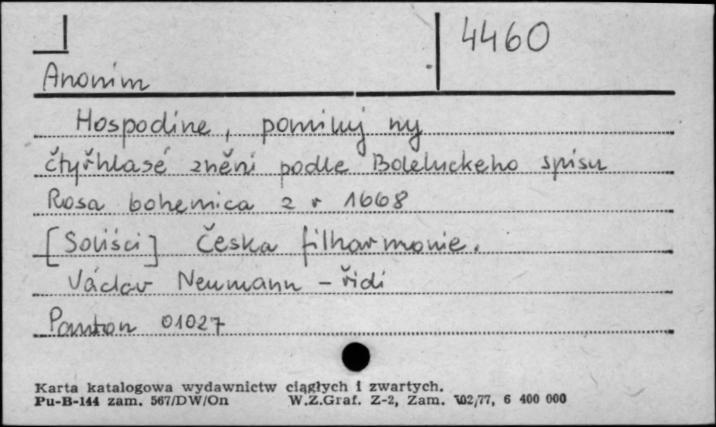 4460
Anonim
Hospodine, pomiluj ny
čtyřhlasé znění podle Boleluckeho spisu
Rosa bohemica z r 1668
[Soliści] Česka filharmonie.
Václav Neumann - řidi
Panton 01027
Karta katalogowa wydawnictw ciągłych i zwartych.
Pu-B-144 zam. 567/DW/On W.Z.Graf. Z-2, Zam. 102/77, 6 400 000